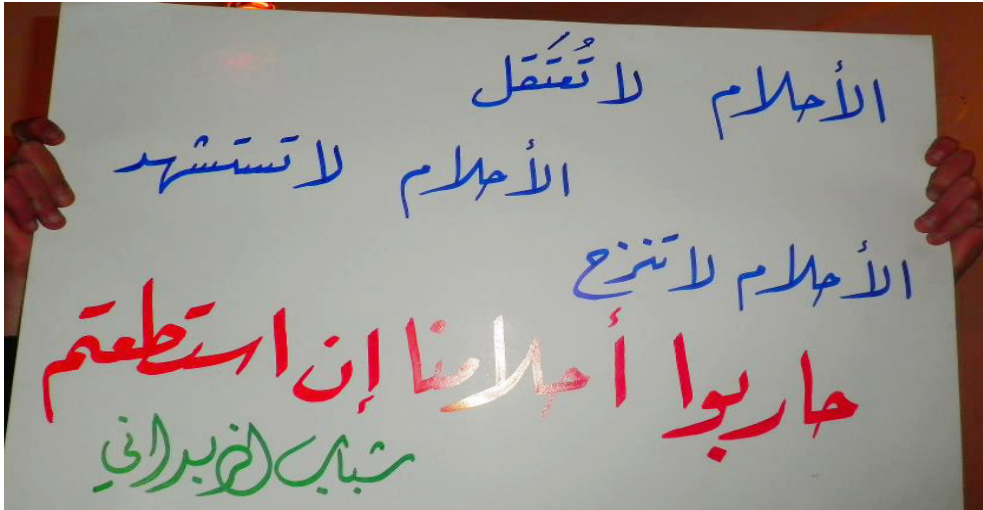 الأحلام لا تُعتَقل
الأحلام لا تستشهد
الأحلام لا تنزح
حاربوا أحلامنا إن استطعتم
شباب الزبداني